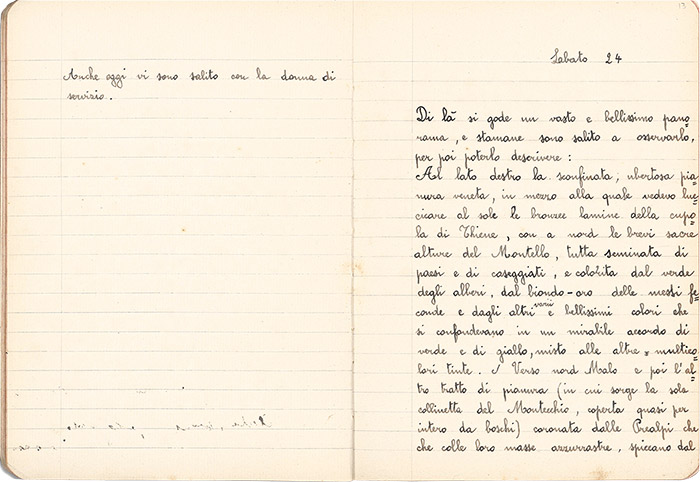 Anche oggi vi sono salito con la donna di
servizio.
13
Sabato 24
Di là si gode un vasto e bellissimo pano=
rama, e stamane sono salito a osservarlo,
per poi poterlo descrivere :
Al lato destro la sconfinata, ubertosa pia=
nura veneta, in mezzo alla quale vedevo luc=
cicare al sole le bronzee lamine della cupo=
la di Thiene, con a nord le brevi sacre
alture del Montello, tutta seminata di
paesi e di caseggiati, e colorita dal verde
degli alberi, dal biondo-oro delle messi fe=
conde e dagli altri varii e bellissimi colori che
si confondevano in un mirabile accordo di
verde e di giallo, misto alle altre multico=
lori tinte. Verso nord Malo e poi l'al=
tro tratto di pianura (in cui sorge la sola
collinetta del Montecchio, coperta quasi per
intero da boschi) coronata dalle Prealpi che
che colle loro masse azzurrastre, spiccano dal